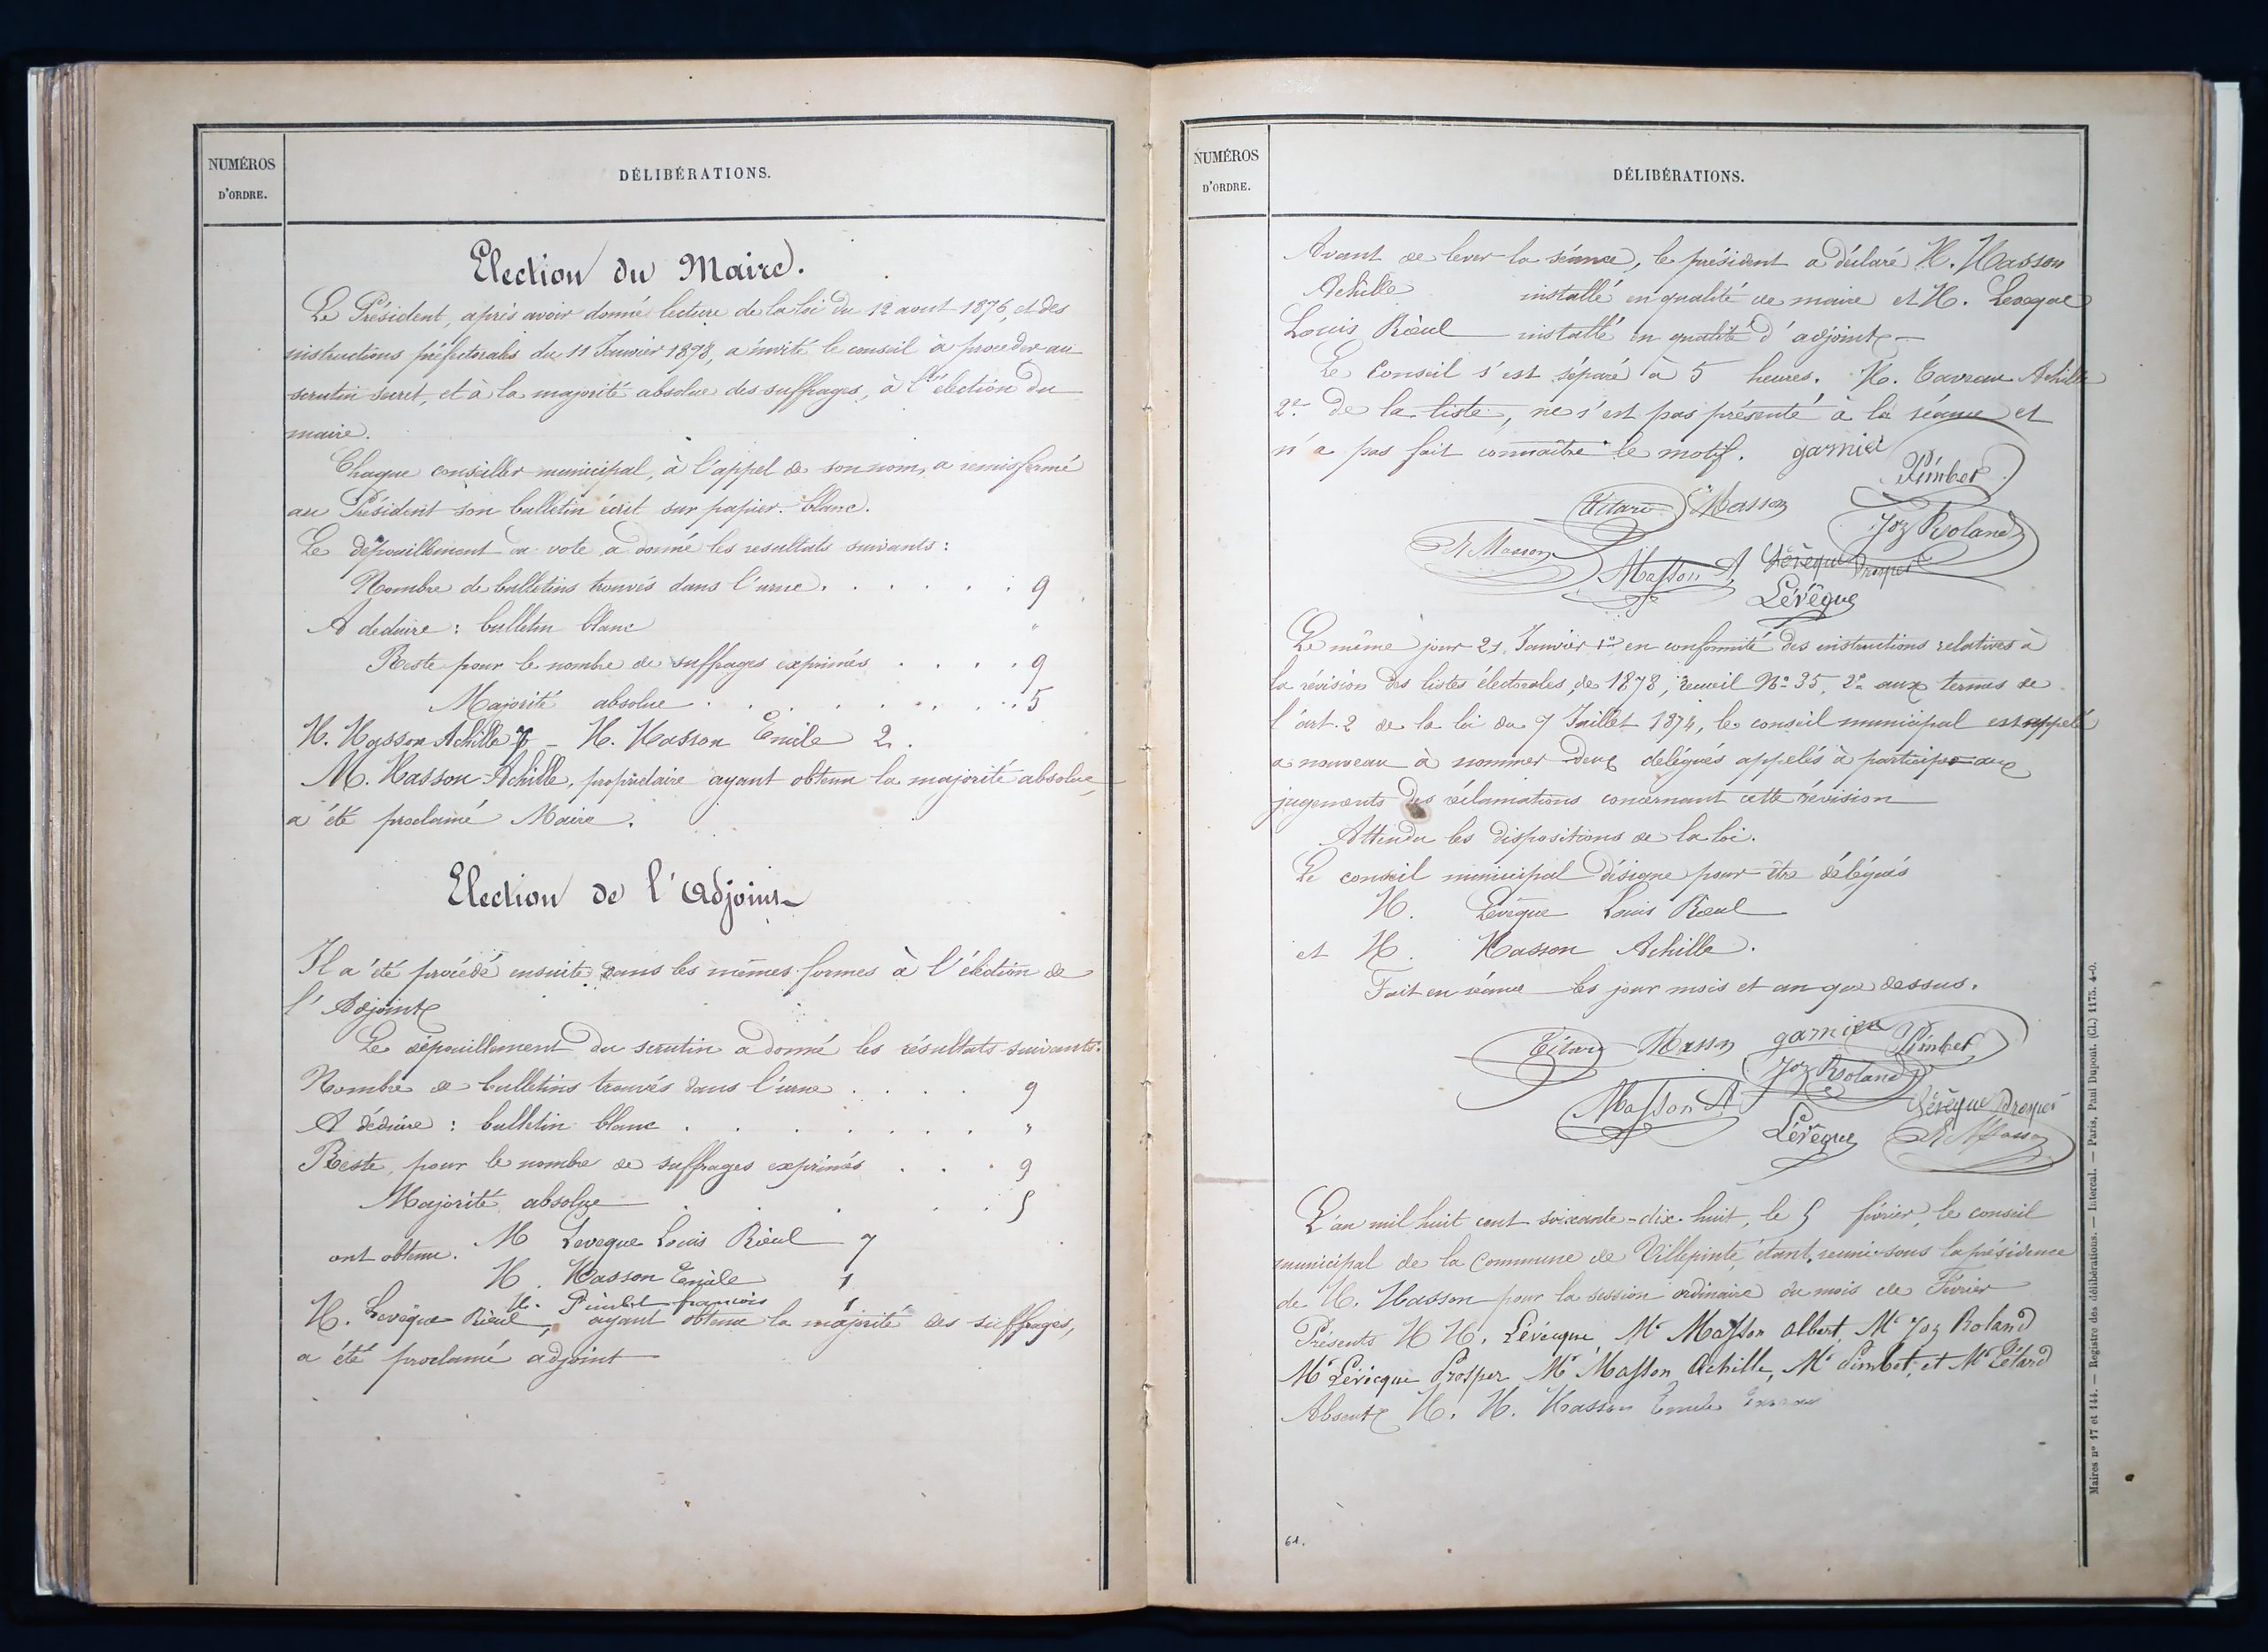 NUMÉROS
D'ORDRE.
DÉLIBÉRATIONS.
Election du Maire.
Le Président, après avoir donné lecture de la loi du 12 aout 1876, et des
instructions préfectorales du 11 Janvier 1878, a invité le conseil à proceder au
scrutin secret, et à la majorité absolue des suffrages, à l'élection du
maire.
Chaque conseiller municipal, à l'appel de son nom, a remis fermé
au Président son bulletin écrit sur papier blanc.
Le dépouillement du vote a donné les resultats suivants :
Nombre de bulletins trouvés dans l'urne . . . . . . 9
A deduire : bulletin blanc "
Reste pour le nombre de suffrages exprimés . . . . 9
Majorité absolue . . . . . . . . 5
M. Masson Achille 7 – M. Masson Emile 2.
M. Masson Achille, propriétaire ayant obtenu la majorité absolue,
a été proclamé Maire.
Election de l'Adjoint
Il a été procédé ensuite dans les mêmes formes à l'élection de
l'Adjoint
Le dépouillement du scrutin a donné les résultats suivants.
Nombre de bulletins trouvés dans l'urne . . . . 9
A déduire : bulletin blanc . . . . . . . "
Reste, pour le nombre de suffrages exprimés . . . 9
Majorité absolue . . . . . 5
ont obtenu. M Leveque Louis Rieul 7
M. Masson Emile 1
M. Pimbet françois 1
M. Levêque Rieul, ayant obtenu la majorité des suffrages,
a été proclamé adjoint
NUMÉROS
D'ORDRE.
DÉLIBÉRATIONS.
Avant de lever la séance, le président a déclaré M. Masson
Achille installé en qualité de maire et M. Leveque
Louis Rieul installé en qualité d'adjoint
Le Conseil s'est séparé à 5 heures. M. Achille
2e de la liste, ne s'est pas présenté à la séance et
n'a pas fait connaître le motif. garnier
Pimbet
Létard Masson
Joz Roland
Masson
Masson A Lévêque Prosper
Lévêque
Le même jour 21 Janvier 1° en conformité des instructions relatives à
la révision des listes électorales de 1878, recueil N° 35, 2° aux termes de
l'art. 2 de la loi du 7 Juillet 1874, le conseil municipal est appelé
a nouveau à nommer deux delégués appelés à participer aux
jugements des réclamations concernant cette révision
Attendu les dispositions de la loi.
Le conseil municipal désigne pour être délégués
M. Levêque Louis Rieul
et M. Masson Achille.
Fait en séance les jour mois et an que dessus.
Létard Masson garnier Pimbet
Joz Roland
Masson A Lévêque Prosper
Lévêque Masson
L'an mil huit cent soixante-dix-huit, le 5 février, le conseil
municipal de la Commune de Villepinte, étant reuni sous la présidence
de M. Masson pour la session ordinaire du mois de Février
Présents M M. Lévecque, Mr Masson Albert, Mr Joz Roland
Mr Lévecque Prosper Mr Masson Achille, Mr Pimbet, et Mr Létard
Absents M. M. Masson Emile
61.
Maires nos 17 et 144. — Registre des délibérations. — Intercal. — Paris, Paul Dupont. (Cl.) 1175. 4-0.